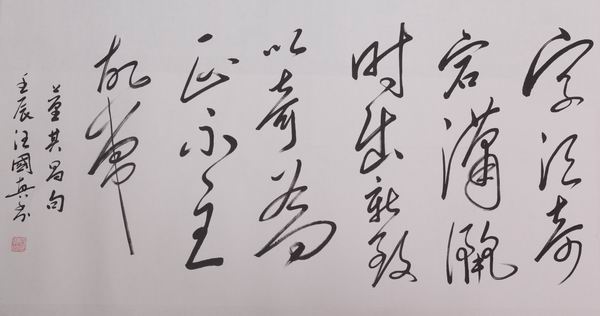 字须奇
宕潇洒
时出新致
以奇为
正不主
故常
董其昌句
壬辰汪國真书